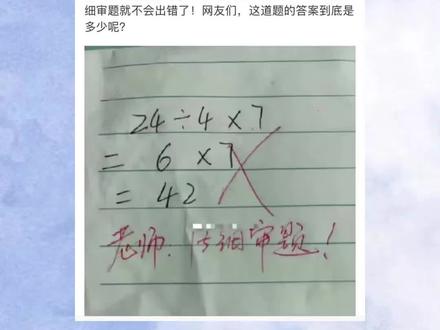 细审题就不会出错了！网友们，这道题的答案到底是
多少呢？
24÷4×7
= 6 ×7
= 42
老师：仔细审题！